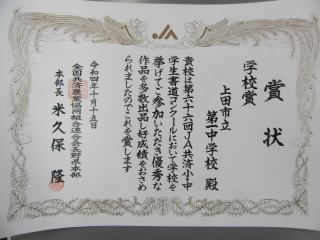 JA
賞状
学校賞
上田市立
第一中学校 殿
貴校は第六十六回JA共済小・中
学生書道コンクールにおいて学校を
挙げてご参加いただき優秀な
作品を多数出品し好成績をおさめ
られましたのでこれを賞します
令和四年十月十五日
全国共済農業協同組合連合会長野県本部
本部長 米久保 隆